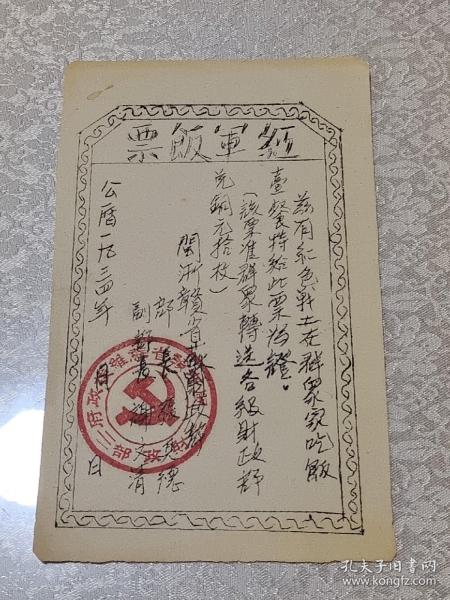 紅軍飯票
茲有紅色戰士在群眾家吃飯
壹餐特給此票為證。
(該票准群眾轉送各級財政部
兌銅元拾枚)
閩浙贛省財政部
部長 張其德
副部長 謝文清
公曆一九三四年 月 日
孔夫子旧书网
www.kongfz.com